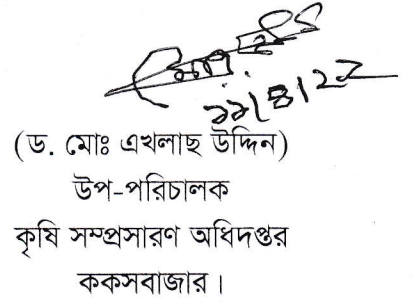 ১১/৪/২২
(ড. মোঃ এখলাছ উদ্দিন)
উপ-পরিচালক
কৃষি সম্প্রসারণ অধিদপ্তর
ককসবাজার।